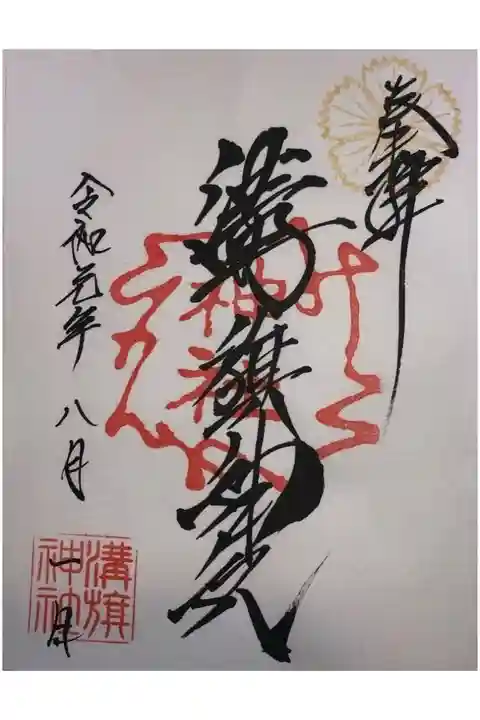 奉拝
溝旗神社
神社
令和元年八月一日
溝旗
神社